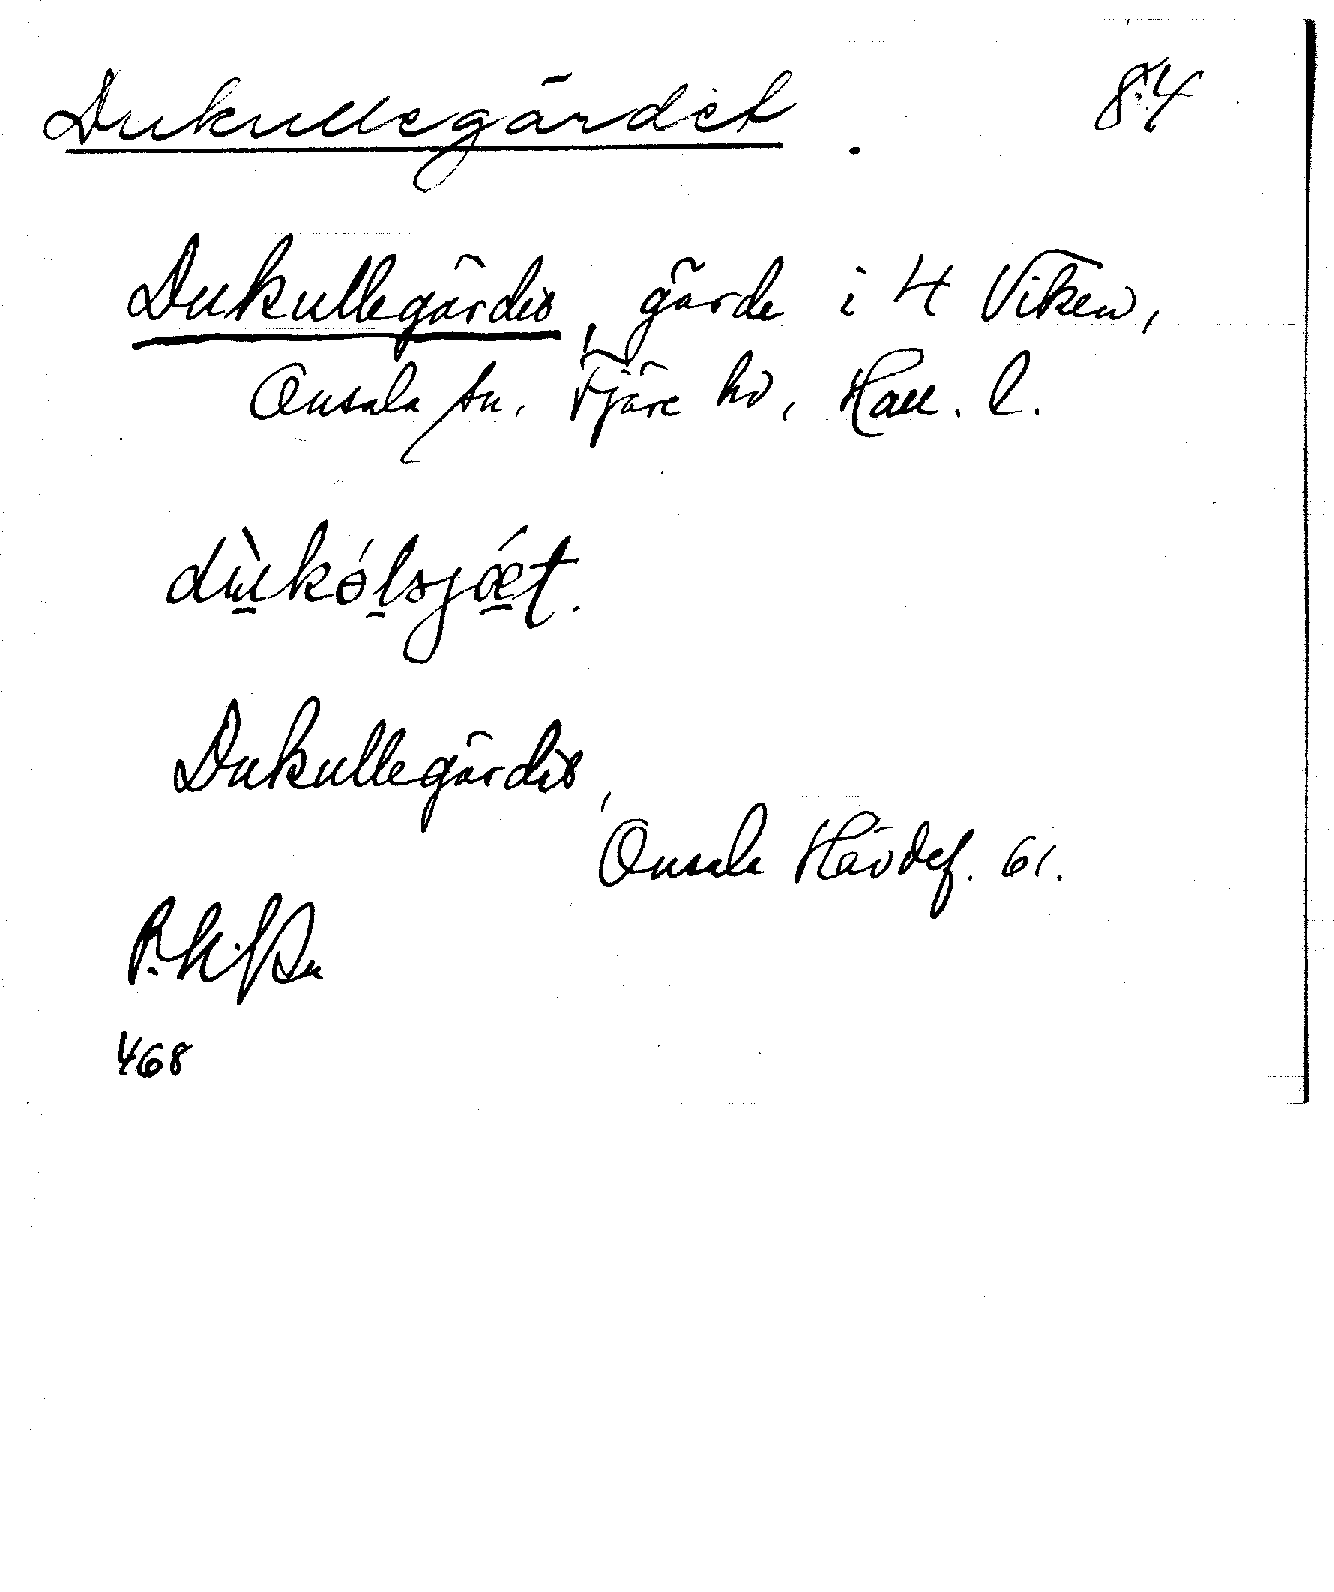 Dukullegärdet. 84
Dukullegärdes, gärde i 4 Viken,
Onsala sn. Fjäre hd, Hall. l.
dùkólsjǽt.
Dukullegärdes,
Onsala Hävdef. 61.
468